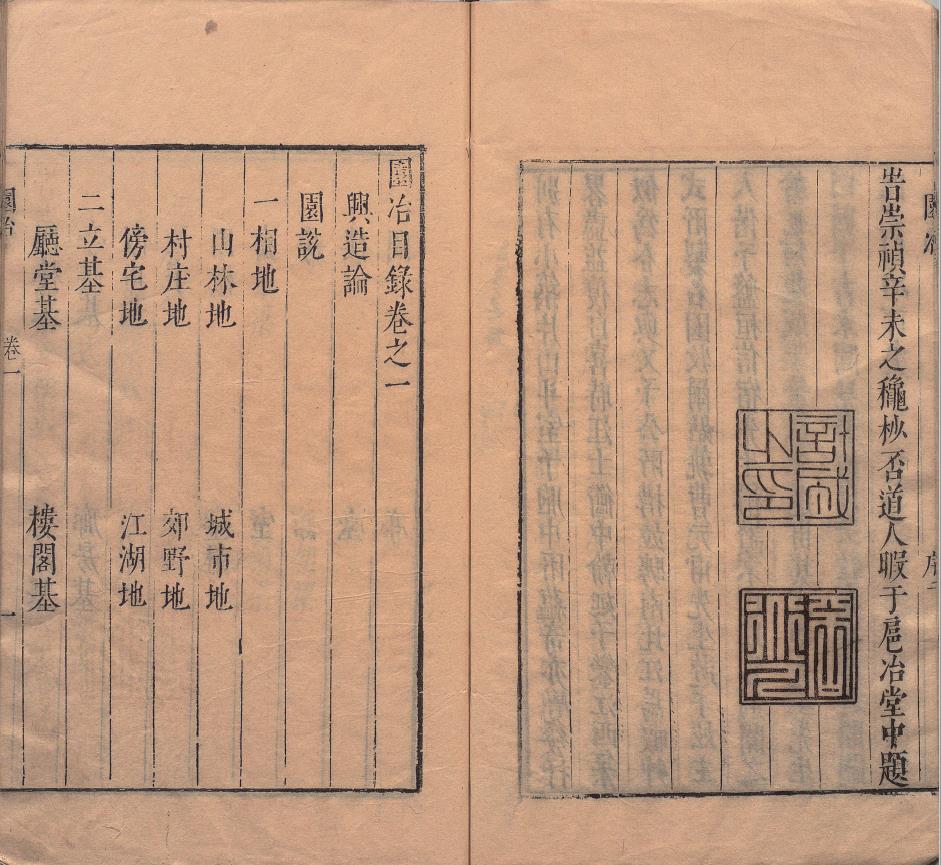 園冶
旹崇禎辛未之穐杪否道人暇于扈冶堂中題
計成之印
園冶目錄卷之一
興造論
園説
一相地
山林地　城市地
村庄地　郊野地
傍宅地　江湖地
二立基
廳堂基　樓閣基
園冶　卷一　一